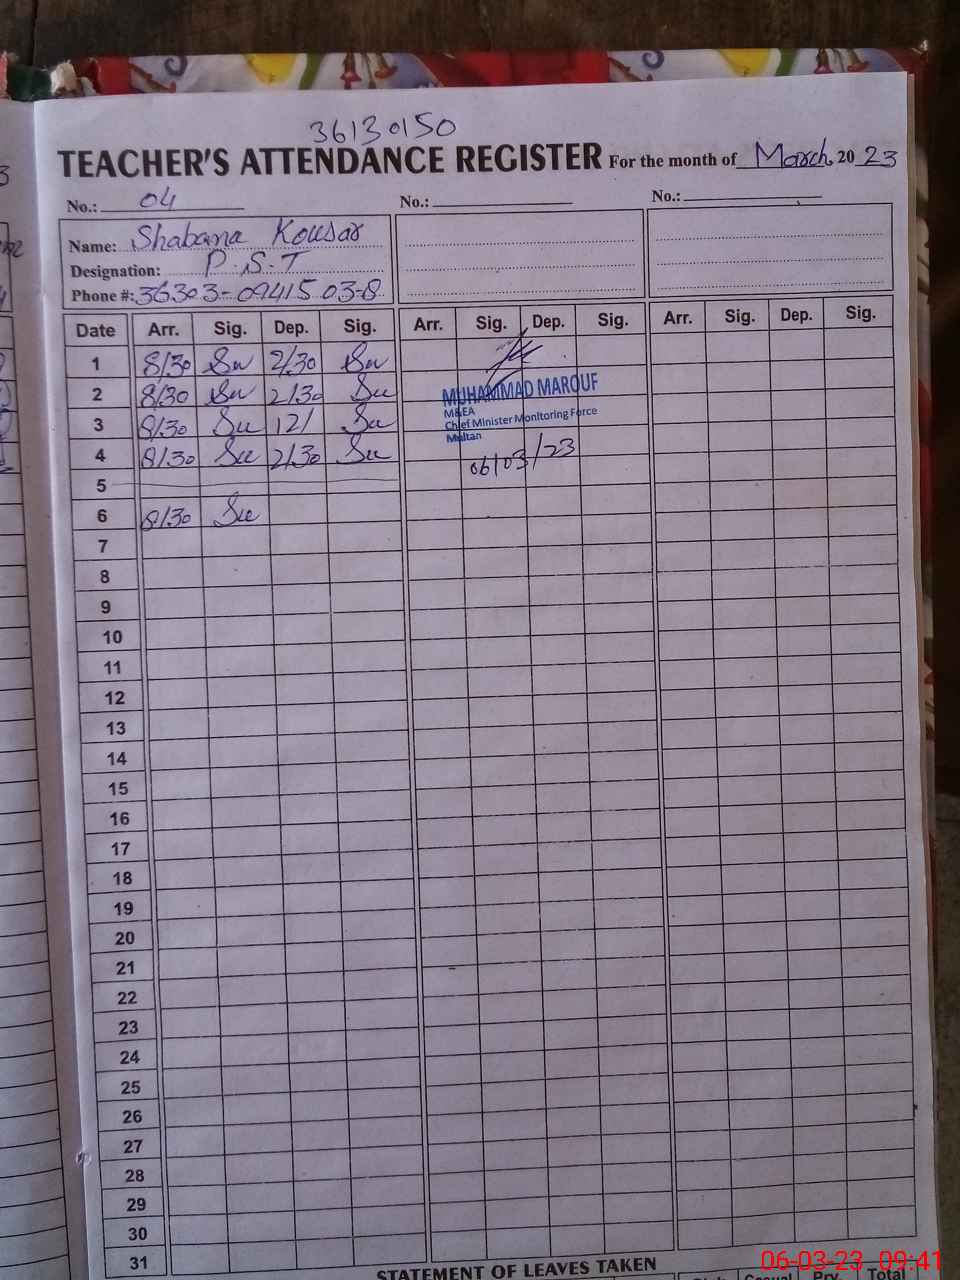 36130150
TEACHER'S ATTENDANCE REGISTER For the month of March 2023
No.: 04 No.: No.:
Name: Shabana Kousar
Designation: P.S.T
Phone #: 36303-0941503-8
Date Arr. Sig. Dep. Sig. Arr. Sig. Dep. Sig. Arr. Sig. Dep. Sig.
1 8/30 2/30
2 8/30 2/30
MUHAMMAD MAROUF
M&EA
3 8/30 12/
Chief Minister Monitoring Force
Multan
4 8/30 2/30
06/03/23
5
6 8/30
7
8
9
10
11
12
13
14
15
16
17
18
19
20
21
22
23
24
25
26
27
28
29
30
31
STATEMENT OF LEAVES TAKEN
Total
06-03-23 09:41